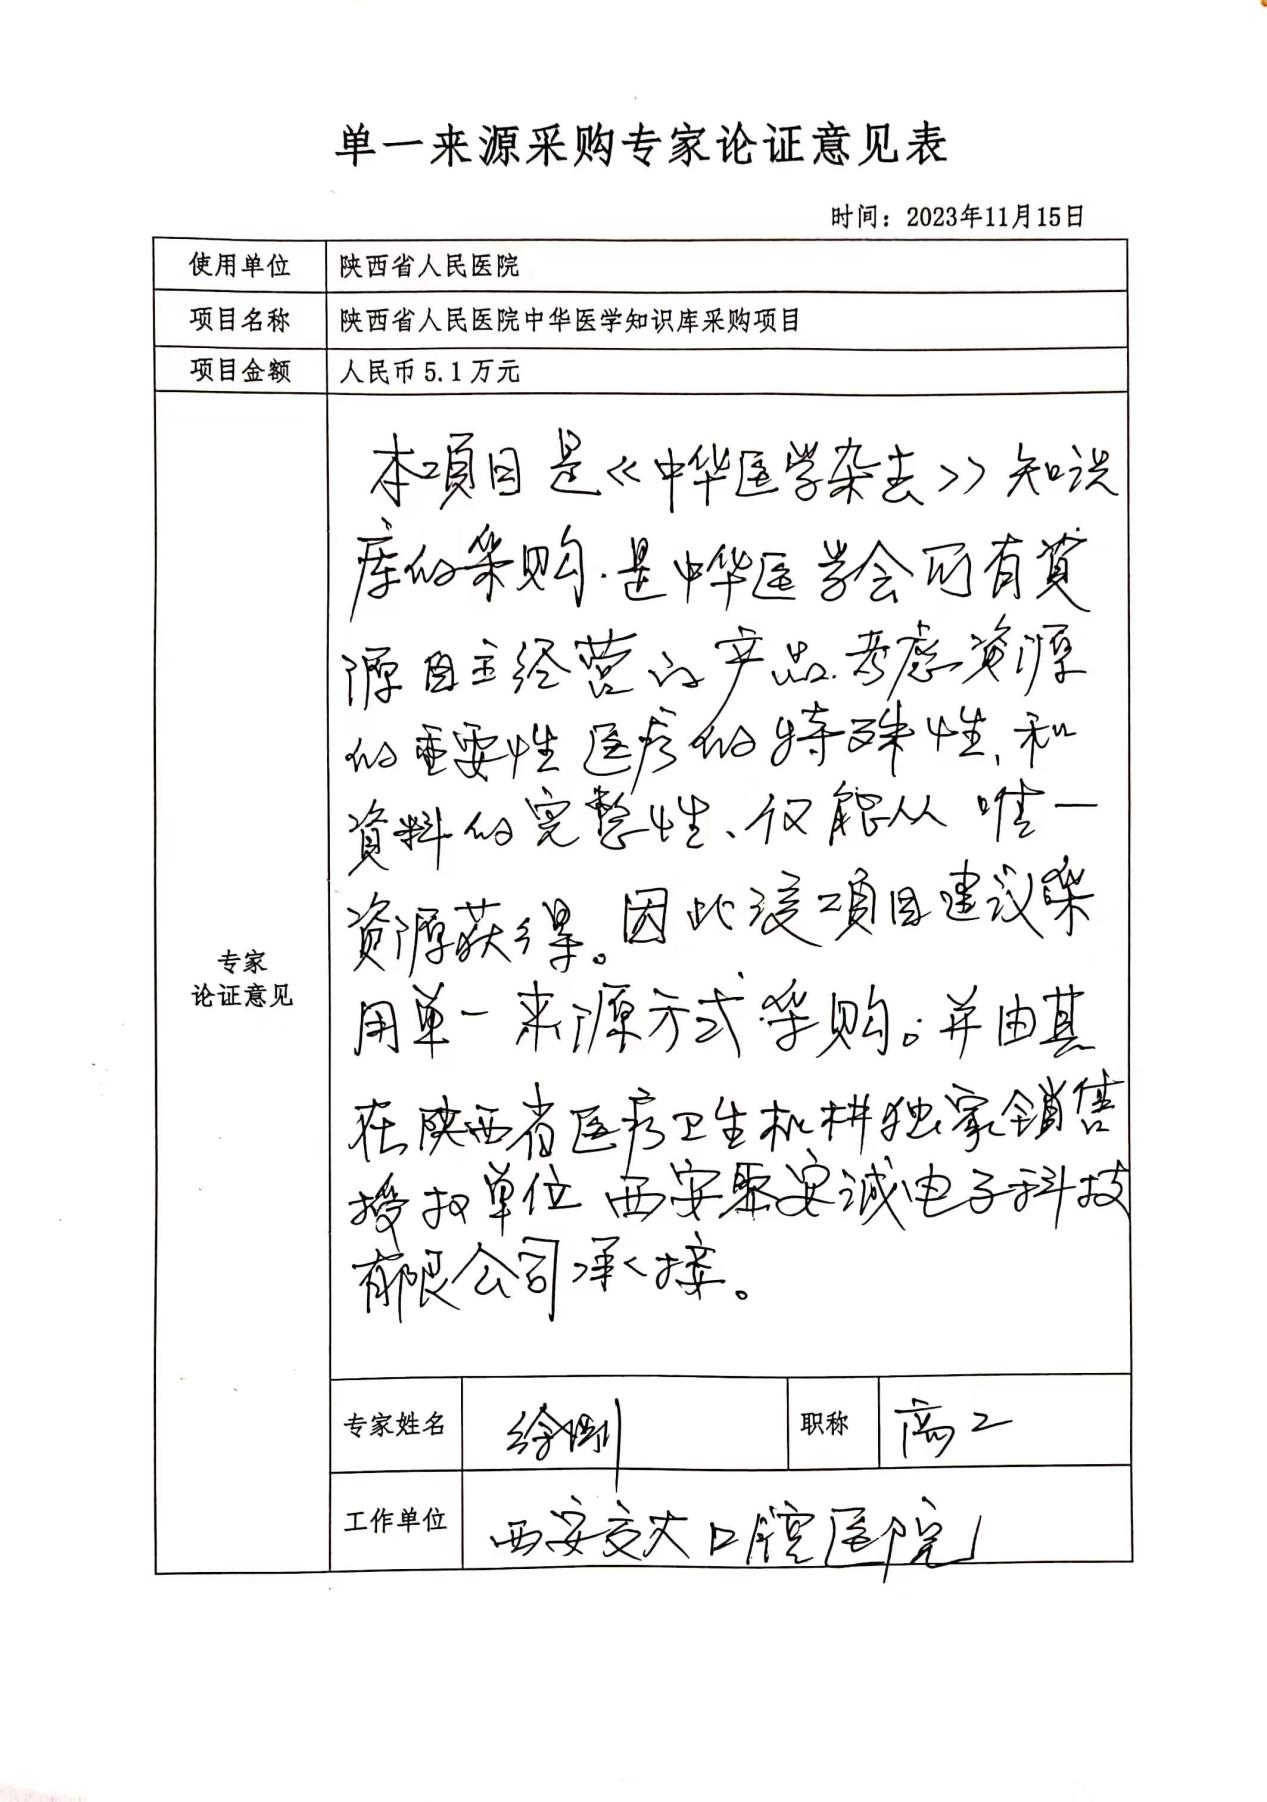 单一来源采购专家论证意见表
时间：2023年11月15日
使用单位 陕西省人民医院
项目名称 陕西省人民医院中华医学知识库采购项目
项目金额 人民币 5.1 万元
专家
论证意见
本项目是《中华医学杂志》知识
库的采购.是中华医学会所有资
源自主经营的产品.考虑资源
的重要性医疗的特殊性、和
资料的完整性、仅能从唯一
资源获得。因此该项目建议采
用单一来源方式采购。并由其
在陕西省医疗卫生机构独家销售
授权单位西安聚安诚电子科技
有限公司承接。
专家姓名 徐 职称 高工
工作单位 西安交大口腔医院